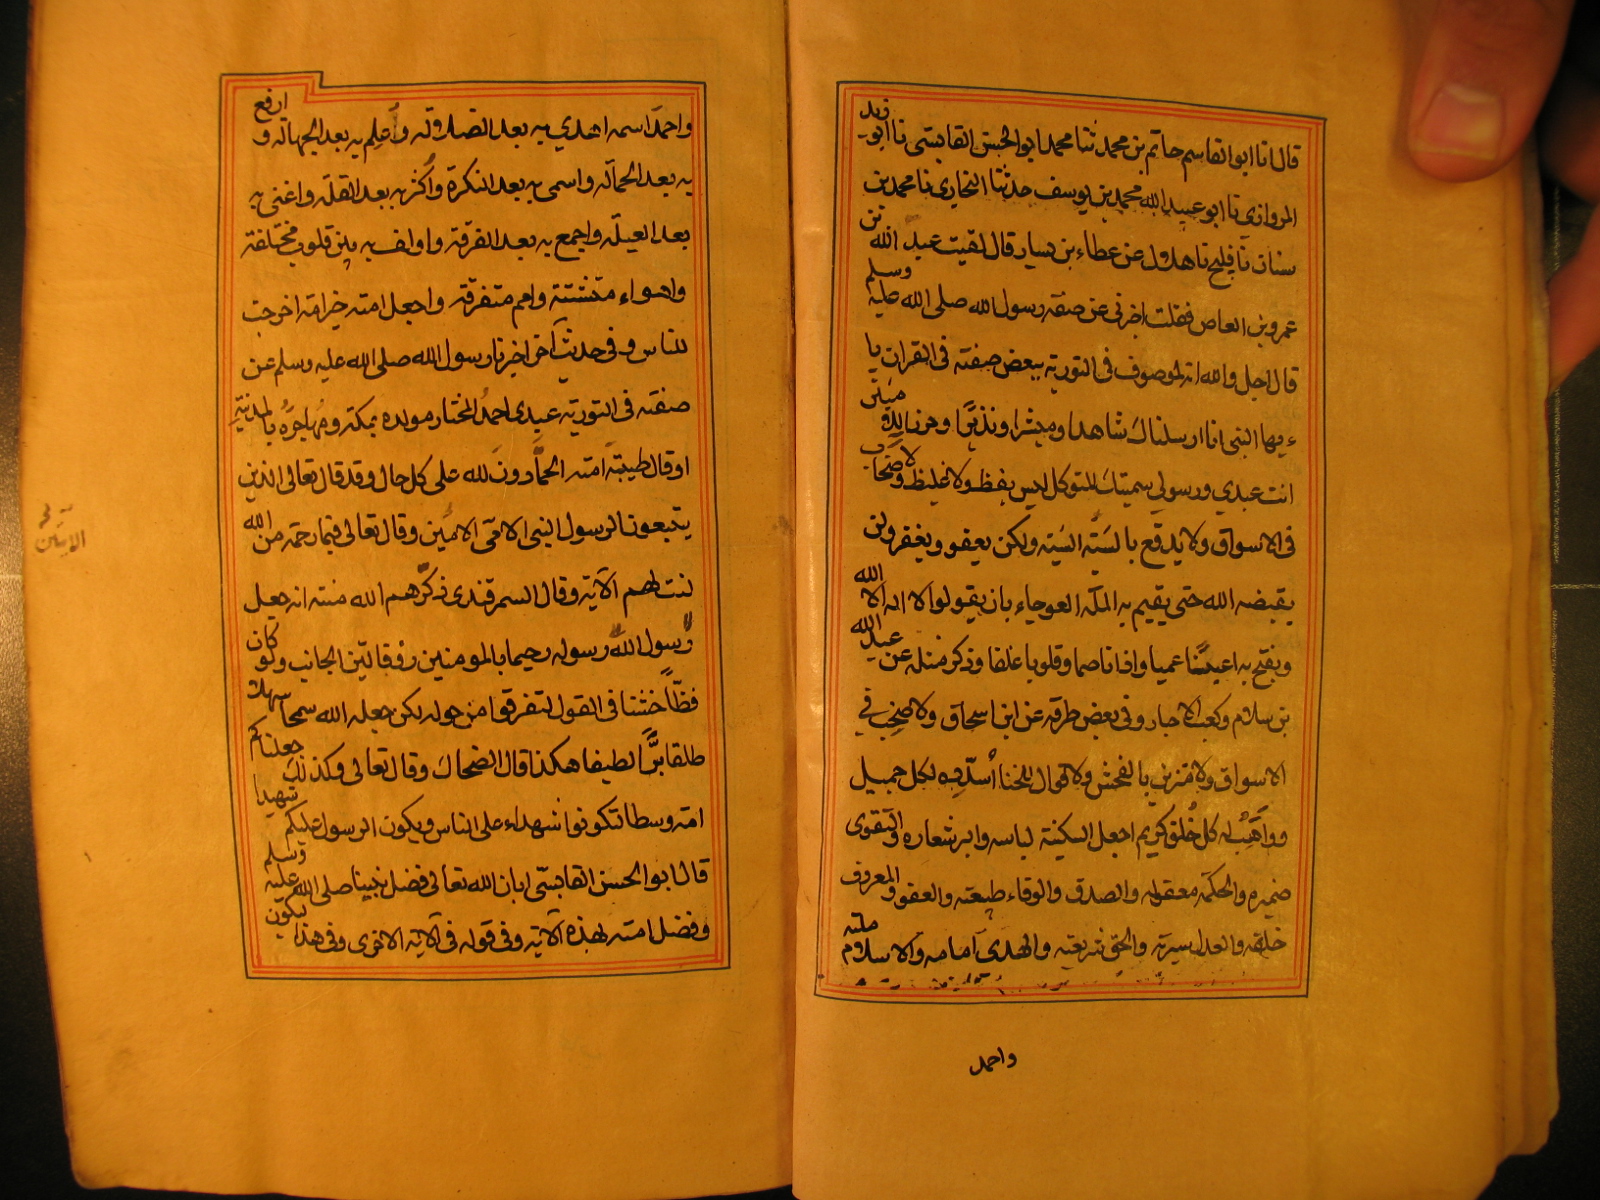 قال انا ابو القاسم حاتم بن محمد ثنا محمد ابو الحسن القابسى نا ابو زيد
المروازى نا ابو عبيد الله محمد بن يوسف حدثنا البخاري نا محمد بن
سنان نا فليح نا هلال عن عطاء بن يسار قال لقيت عبد الله بن
عمرو بن العاص فقلت اخرنى عن صفة رسول الله صلى الله عليه وسلم
قال اجل والله انه لموصوف فى التورية ببعض صفته فى القران يا
ءيها النبى انا ارسلناك شاهدا ومبشرا ونذيرًا وحرزا
انت عبدي ورسولي سميتك المتوكل ليس بفظ ولا غليظ ولا صخاب
فى الاسواق ولا يدفع بالسّيّه السّيه ولكن يعفو ويغفر ولن
يقبضه الله حتى يقيم به الملة العوجاء بان يقولوا لا اله الا الله
ويفتح به اعينًا عميا واذانا صما وقلوبا غلفا وذكر مثله عن عبد الله
بن سلام وكعب الاحبار وفى بعض طرقه عن ابن اسحاق ولا صخب في
الاسواق ولا متزين بالفحش ولا قوال للخنا أسدده لكل جميل
وواهَبُ له كل خُلق كريم اجعل السكينة لباسه والبر شعاره والتقوى
ضميره والحكمة معقوله والصدق والوفاء طبيعته والعفو والمعروف
خلقه والعدل سيرته والحق شريعته والهدى امامه والاسلام ملته
واحمد
واحمدَ اسمه اهدي به بعد الضلالة وأعلِم به بعد الجهالة وارفع
به بعد الخمالة واسمى به بعد النكرة وأكثر به بعد القلة واغنى به
بعد العيلة واجمع به بعد الفرقة واولف به بين قلوب مختلفة
واهواء متشتتة وامم متفرقة واجعل امته خير امة اخرجت
للناس وفى حديث آخر اخبرنا رسول الله صلى الله عليه وسلم عن
صفته فى التورية عبدى احمدُ المختار مولده بمكة ومُهاجرُه بالمدينة
او قال طيبة امته الحمَّادونَ لله على كل حال وقد قال تعالى الذين
يتبعون الرسول النبى الامى الامين وقال تعالى فبما رحمة من الله
الايتين
لنت لهم الآية وقال السمرقندى ذكّرهم الله منته انه جعل
رسول الله رسوله رحيما بالمومنين رؤفا ليّن الجانب ولو كان
فظّا خشنا فى القول لتفرقوا من حوله لكن جعله الله سمحا سهلا
طلقا برًّا لطيفا هكذا قال الضحاك وقال تعالى وكذلك جعلناكم
امة وسطا لتكونوا شهداء على الناس ويكون الرسول عليكم شهيدا
قال ابو الحسن القابسّى ابان الله تعالى فضل نبينا صلى الله عليه وسلم
وفضل امته بهذه الآية وفى قوله فى الآية الاخرى وفى هذا ليكون